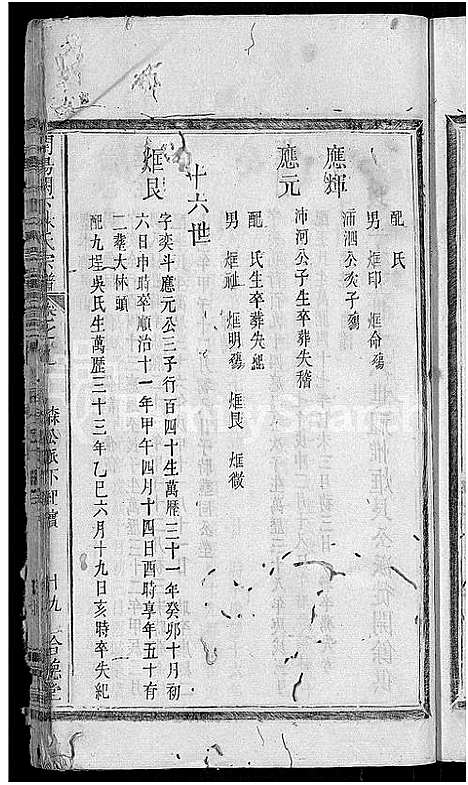 配氏
男 炡印 炡命殤
應輝
沛泗公次子殤
應元
沛河公子生卒葬失稽
配氏生卒葬失紀
男 炡祉 炡明殤 炡艮 炡徵
十六世
炡艮
字奕斗應元公三子行百四十生萬曆三十一年癸卯十月初
六日申時卒順治十一年甲午四月十四日酉時享年五十有
二葬大林頭
配九埕吳氏生萬曆三十三年乙巳六月十九日亥時卒失紀
氏宗譜
森公派下
十九